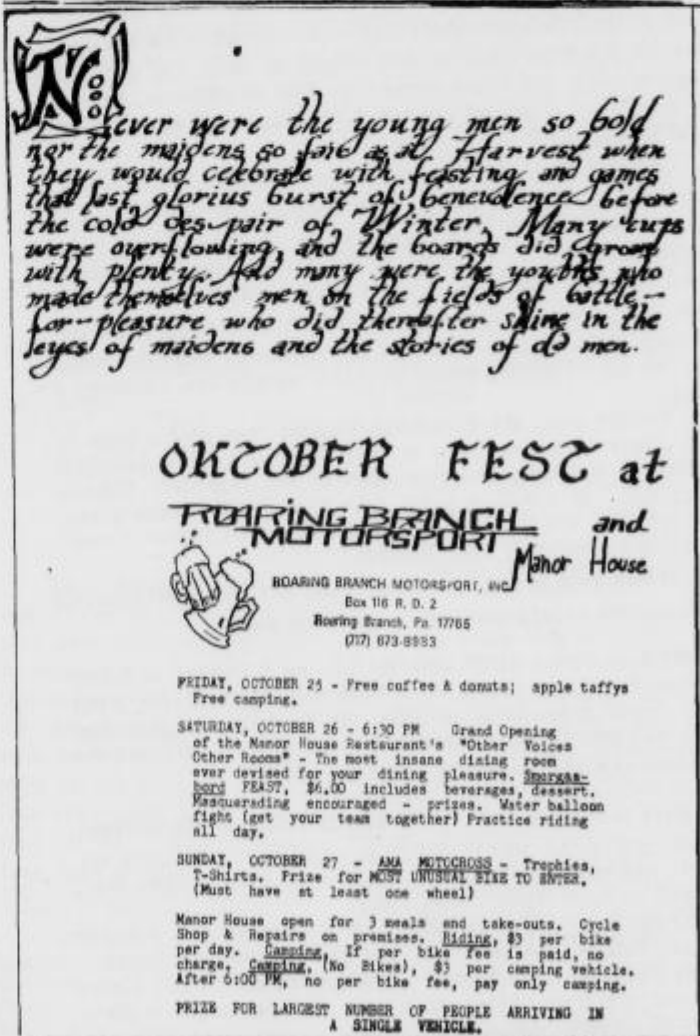 Never were the young men so bold
nor the maidens so fair as at Harvest when
they would celebrate with feasting and games
that last glorius burst of benevolence before
the cold despair of Winter. Many cups
were overflowing, and the boards did groan
with plenty. And many were the youths who
made themselves men on the fields of battle-
for-pleasure who did thereafter shine in the
eyes of maidens and the stories of old men.
OKTOBER FEST at
ROARING BRANCH
MOTORSPORT
and
Manor House
ROARING BRANCH MOTORSPORT, INC.
Box 116 R. D. 2
Roaring Branch, Pa. 17765
(717) 673-8933
FRIDAY, OCTOBER 25 - Free coffee & donuts; apple taffys
Free camping.
SATURDAY, OCTOBER 26 - 6:30 PM Grand Opening
of the Manor House Restaurant's "Other Voices
Other Rooms" - The most insane dining room
ever devised for your dining pleasure. Smorgas-
bord FEAST, $6.00 includes beverages, dessert.
Masquerading encouraged - prizes. Water balloon
fight (get your team together) Practice riding
all day.
SUNDAY, OCTOBER 27 - AMA MOTOCROSS - Trophies,
T-Shirts. Prize for MOST UNUSUAL BIKE TO ENTER.
(Must have at least one wheel)
Manor House open for 3 meals and take-outs. Cycle
Shop & Repairs on premises. Riding, $3 per bike
per day. Camping, If per bike fee is paid, no
charge. Camping, (No Bikes), $3 per camping vehicle.
After 6:00 PM, no per bike fee, pay only camping.
PRIZE FOR LARGEST NUMBER OF PEOPLE ARRIVING IN
A SINGLE VEHICLE.